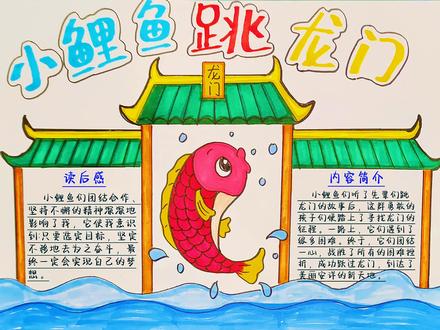 小鲤鱼跳龙门
龙门
读后感
小鲤鱼们团结合作、
坚持不懈的精神深深地
影响了我，它使我意识
到只要选定目标，坚定
不移地去为之奋斗，最
终一定会实现自己的梦
想。
内容简介
小鲤鱼们听了先辈们跳
龙门的故事后，这群勇敢的
孩子们便踏上了寻找龙门的
征程，一路上，它们遇到了
很多困难。终于，它们团结
一心，战胜了所有的困难挫
折，成功跃过龙门，到达了
美丽安详的新天地。